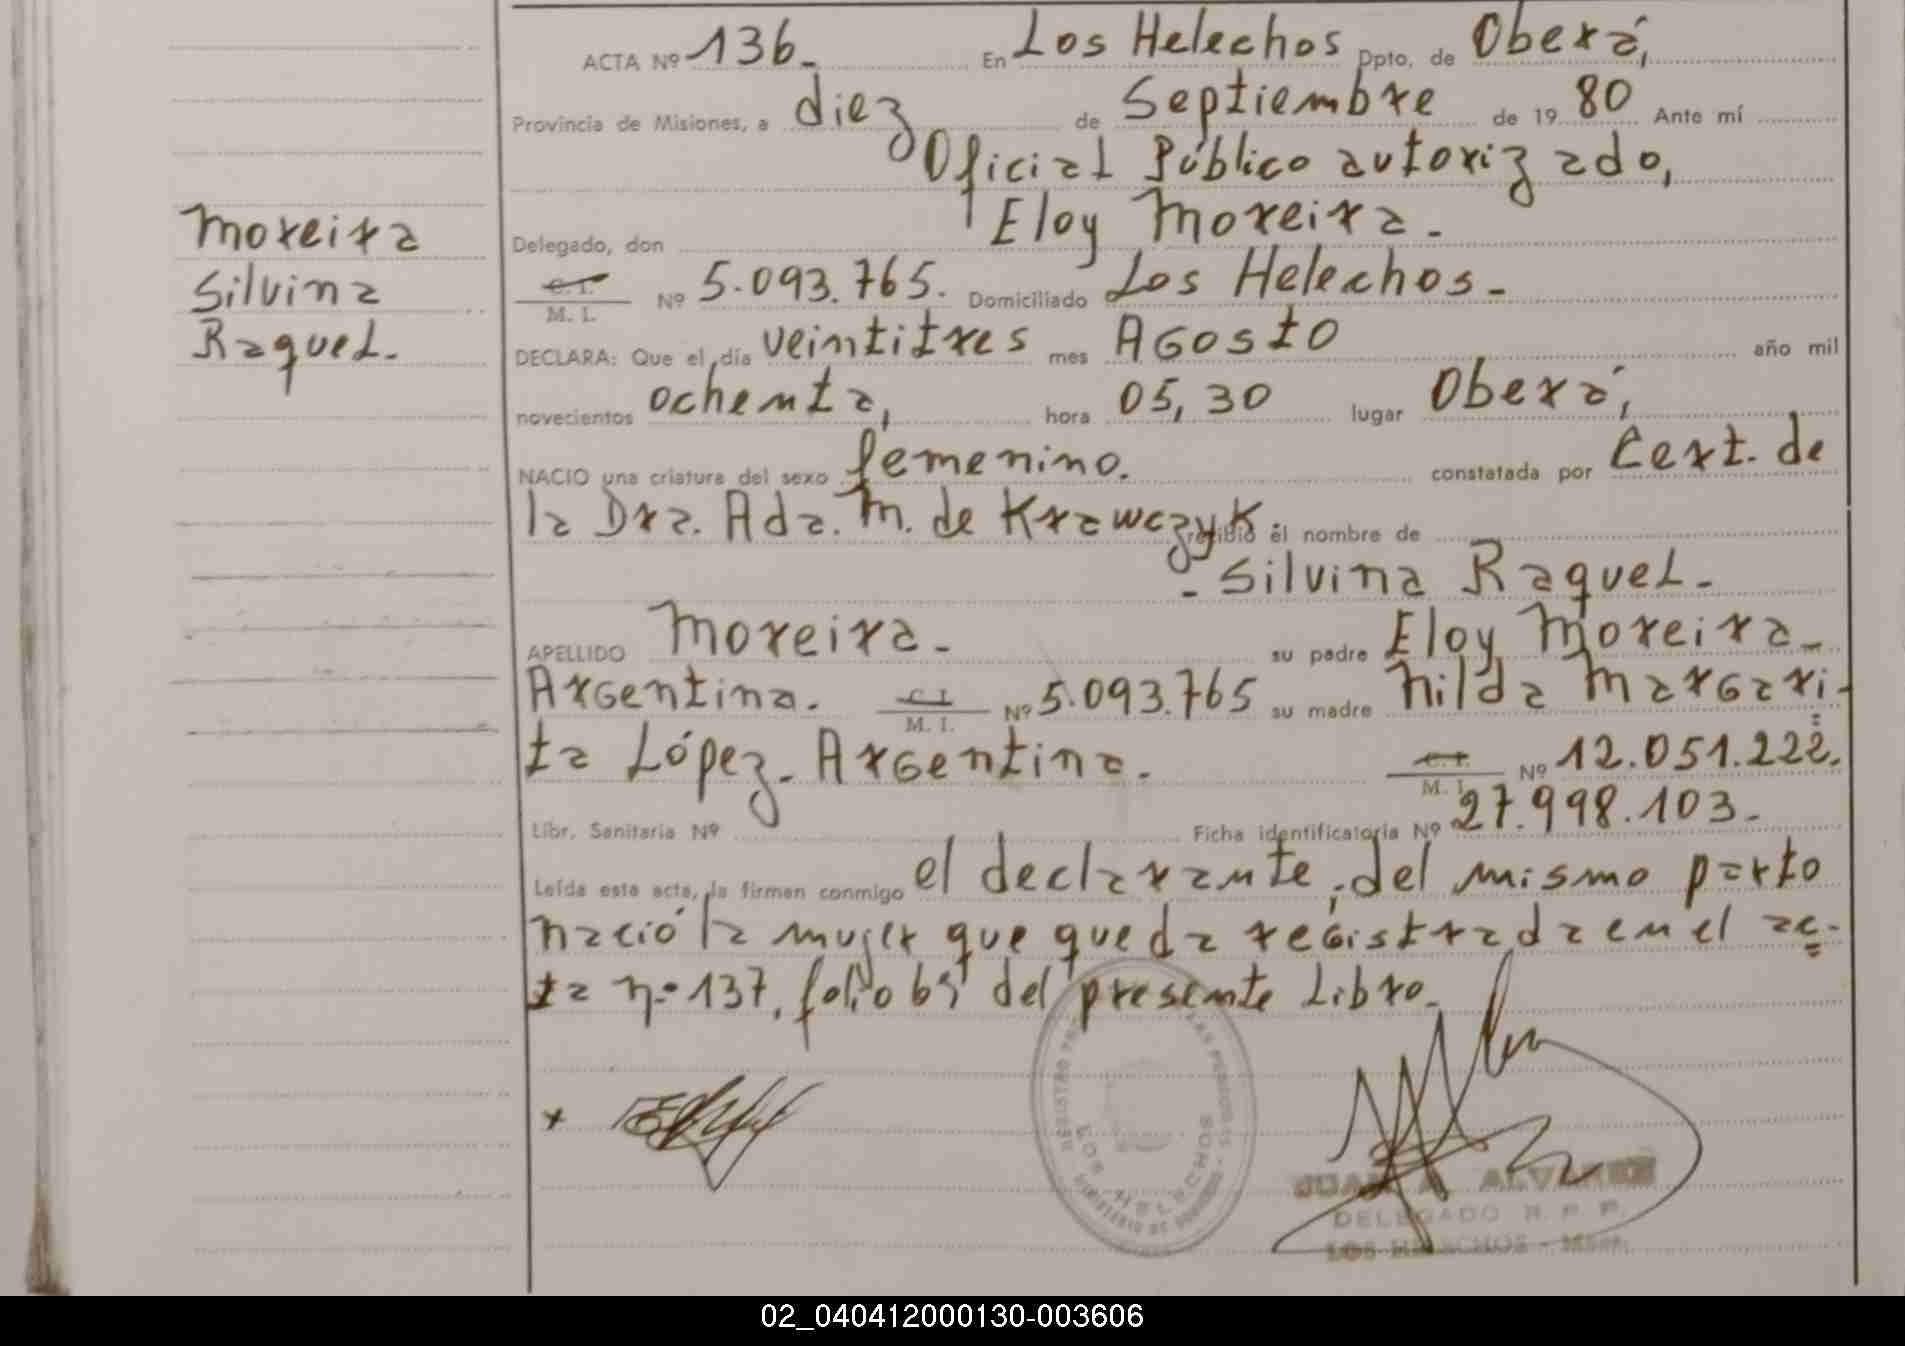 ACTA Nº 136. En Los Helechos Dpto. de Oberá,
Provincia de Misiones, a diez de Septiembre de 19 80 Ante mí
Oficial Público autorizado,
Delegado, don Eloy Moreira.
C. I. / M. I. Nº 5.093.765. Domiciliado Los Helechos.
DECLARA: Que el día veintitres mes AGosto año mil
novecientos ochenta, hora 05,30 lugar Oberá,
NACIO una criatura del sexo femenino. constatada por Cert. de
la Dra. Ada. M. de Krawczyk. recibió el nombre de
- Silvina Raquel.
APELLIDO Moreira. su padre Eloy Moreira.
Argentina. C. I. / M. I. Nº 5.093.765 su madre Nilda Margari-
ta López. Argentina. C. I. / M. I. Nº 12.051.222.
Libr. Sanitaria Nº Ficha identificatoria Nº 27.998.103.
Leída esta acta, la firman conmigo el declarante, del mismo parto
nació la mujer que queda registrada en el ac-
ta n.º 137, folio 69 del presente Libro.
Moreira
Silvina
Raquel.
LOS HELECHOS
JUAN A. ALVAREZ
DELEGADO R. P. P.
LOS HELECHOS - Mnes.
02_040412000130-003606